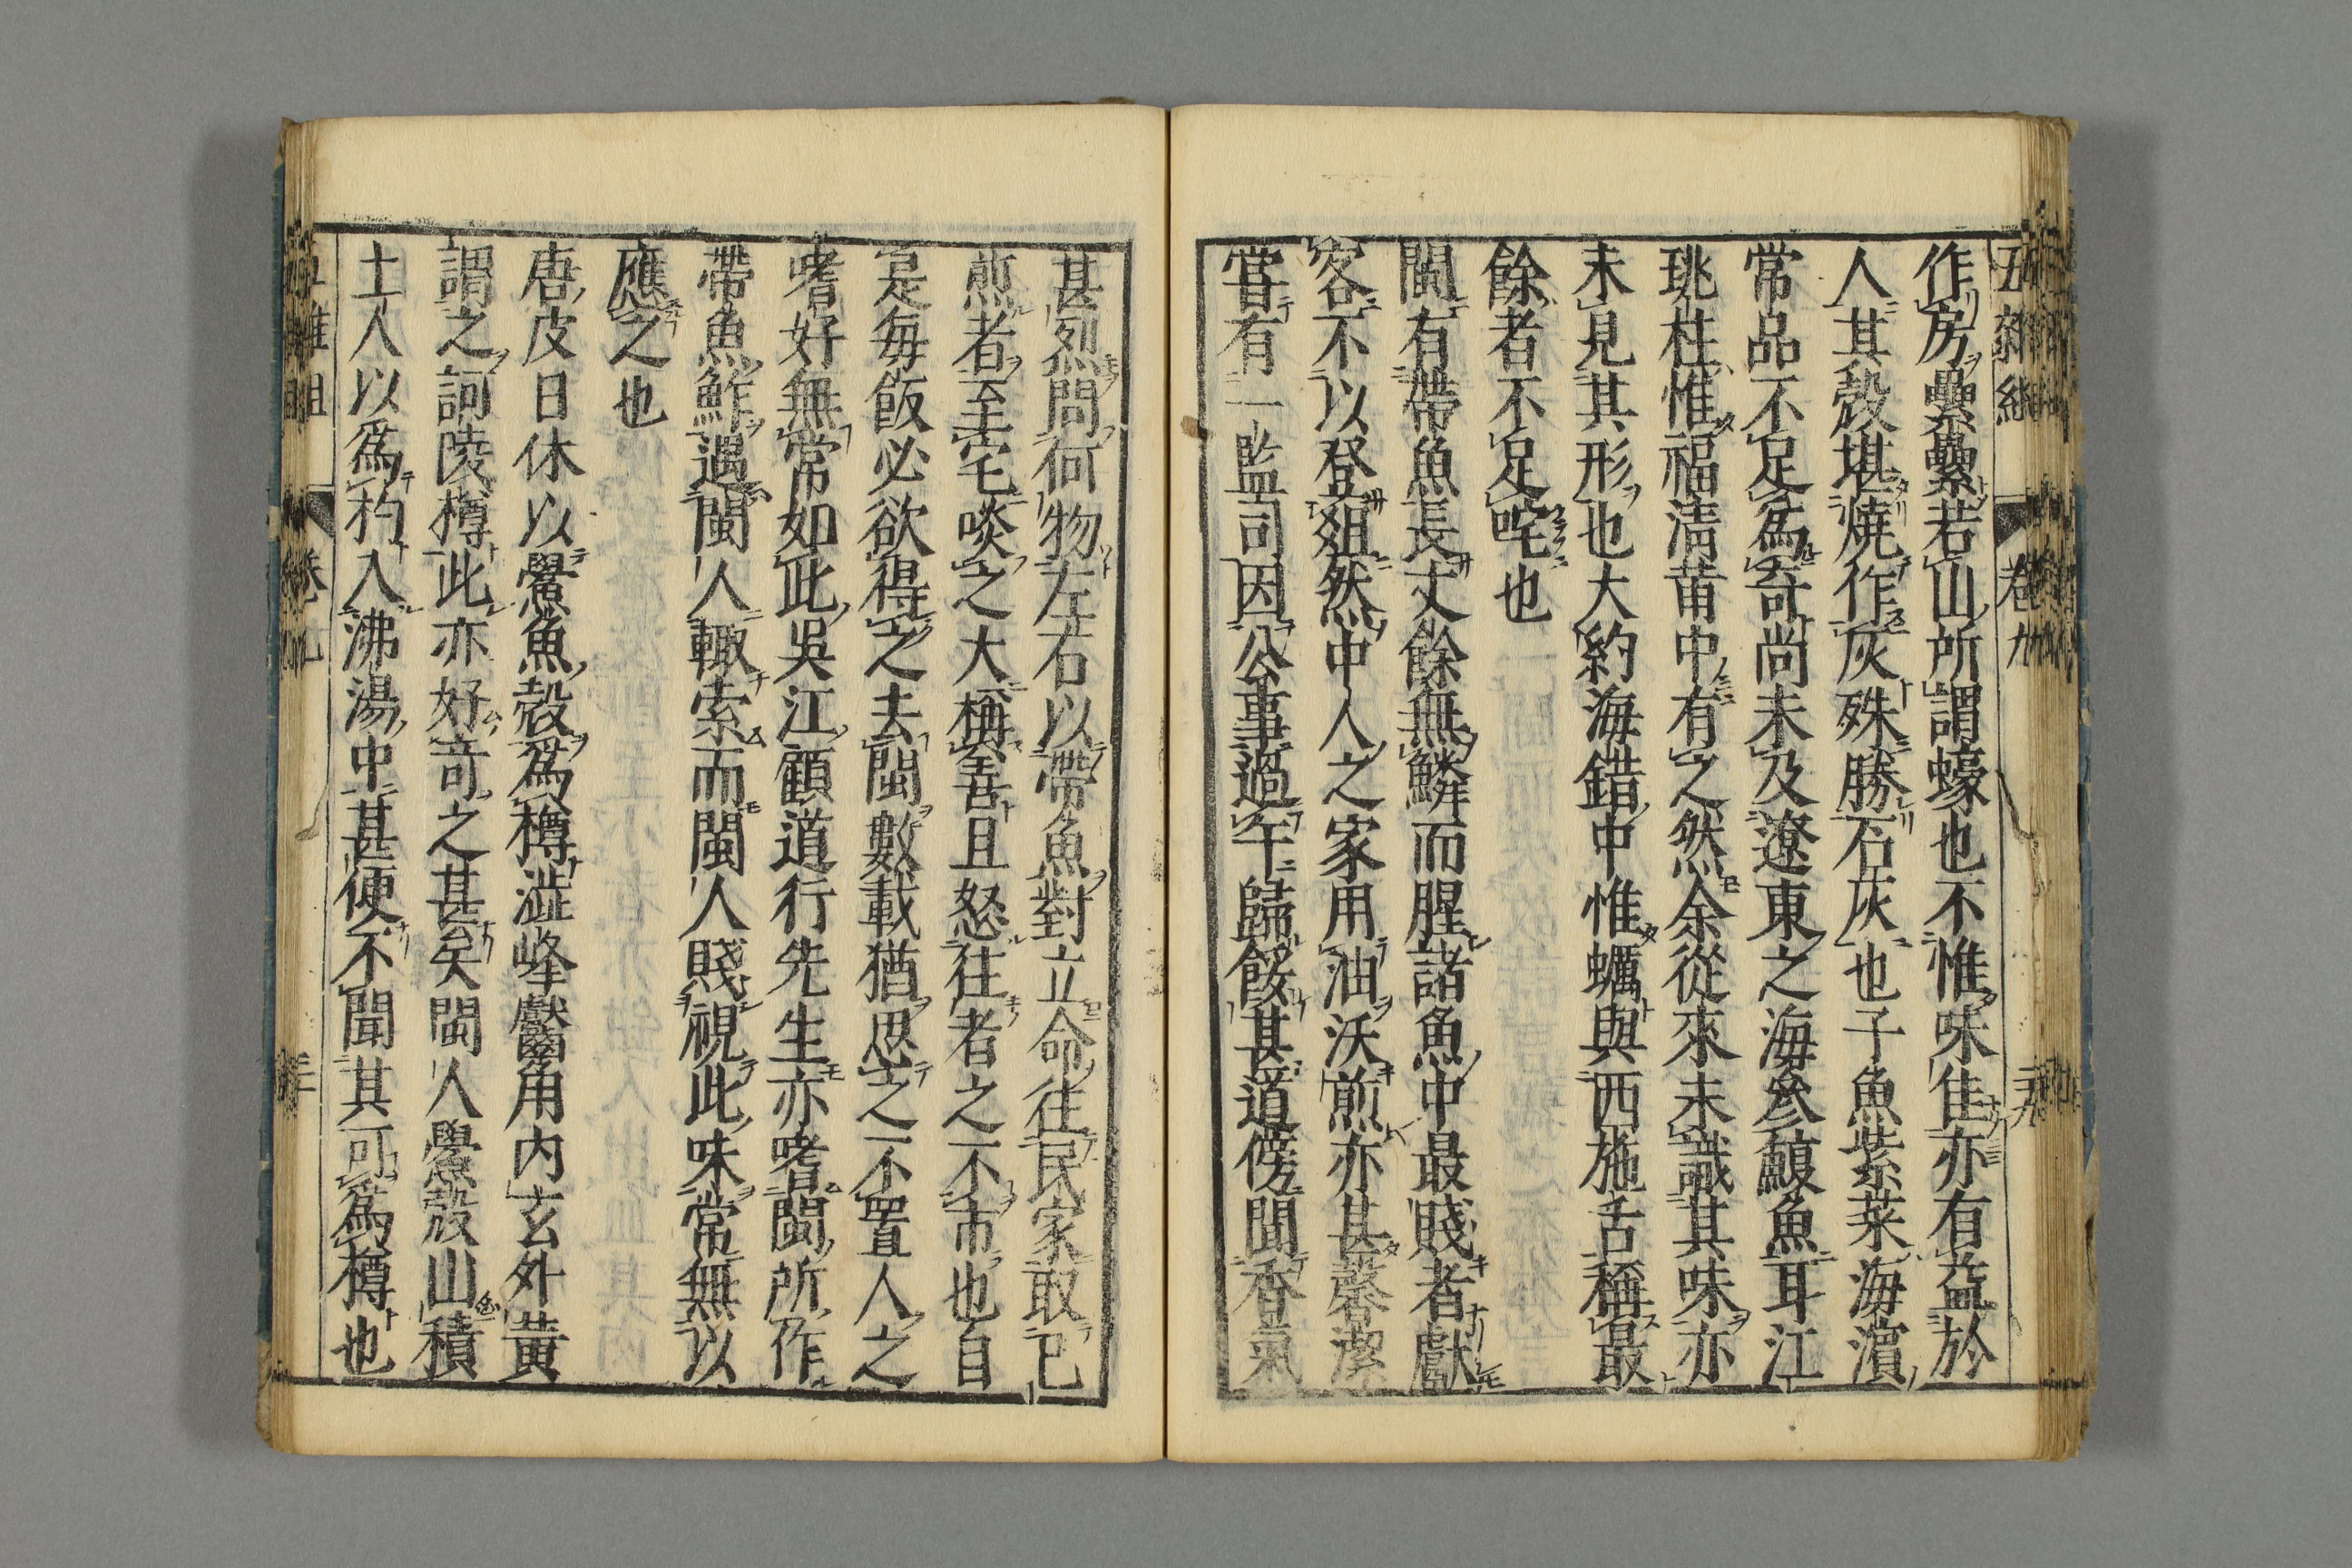 五雜組 卷九
作房纍纍若山所謂蠔也不惟味佳亦有益於
人其殻堪燒作灰殊勝石灰也子魚紫菜海濵
常品不足爲奇尚未及遼東之海參鰒魚耳江
珧柱惟福清莆中有之然余從來未識其味亦
未見其形也大約海錯中惟蠣與西施舌稱最
餘者不足咤也
閩有帶魚長丈餘無鱗而腥諸魚中最賤者獻
客不以登爼然中人之家用油沃煎亦甚馨潔
甞有一監司因公事過午歸餒甚道傍聞香氣
甚烈問何物左右以帶魚對立命往民家取已
煎者至宅啖之大稱善且怒往者之不市也自
是毎飯必欲得之去閩數載猶思之不置人之
嗜好無常如此吳江顧道行先生亦嗜閩所作
帶魚鮓遇閩人輙索而閩人賤視此味常無以
應之也
唐皮日休以鱟魚殻爲樽澁峰齾角内玄外黄
謂之訶陵樽此亦好奇之甚矣閩人鱟殻山積
土人以爲杓入沸湯中甚便不聞其可爲樽也